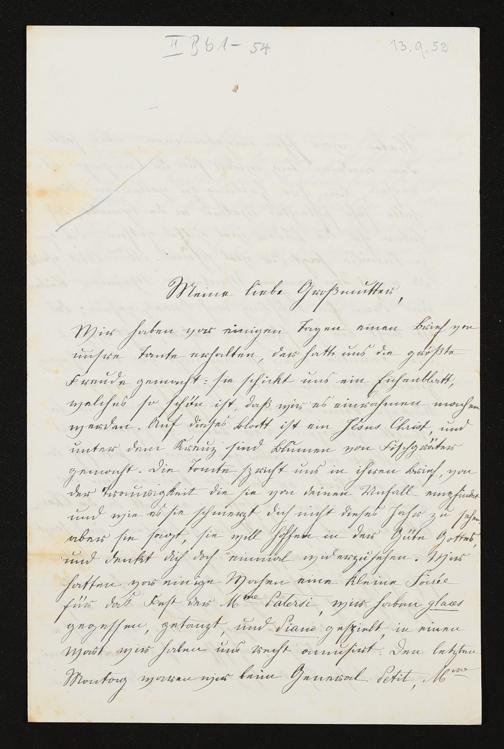 II B b 1 - 54
13.9.52
Meine liebe Großmutter,
Wir haben vor einigen Tagen einen Brief von
unsre Tante erhalten, der hatte uns die größte
Freude gemacht: sie schickt uns ein Eichenblatt,
welches so schön ist, daß wir es einrahmen machen
werden. Auf dieses Blatt ist ein Jésus Christ, und
unter dem Kreuz sind Blumen von Fischgräter
gemacht. Die Tante spricht uns in ihren Brief, von
der Traurigkeit die sie von deinen Unfall empfindet
und wie es sie schmerzt dich nicht dieses Jahr zu sehen,
aber sie sagt, sie will hoffen in der Güte Gottes,
und denkt dich doch einmal wiederzusehen. Wir
hatten vor einige Wochen eine kleine Soirée
für das Fest der Mme, wir haben glaces
gegessen, getanzt, und Piano gespielt, in einen
Wort wir haben uns recht amusirt. Den letzten
Montag waren wir beim General Petit, Mme